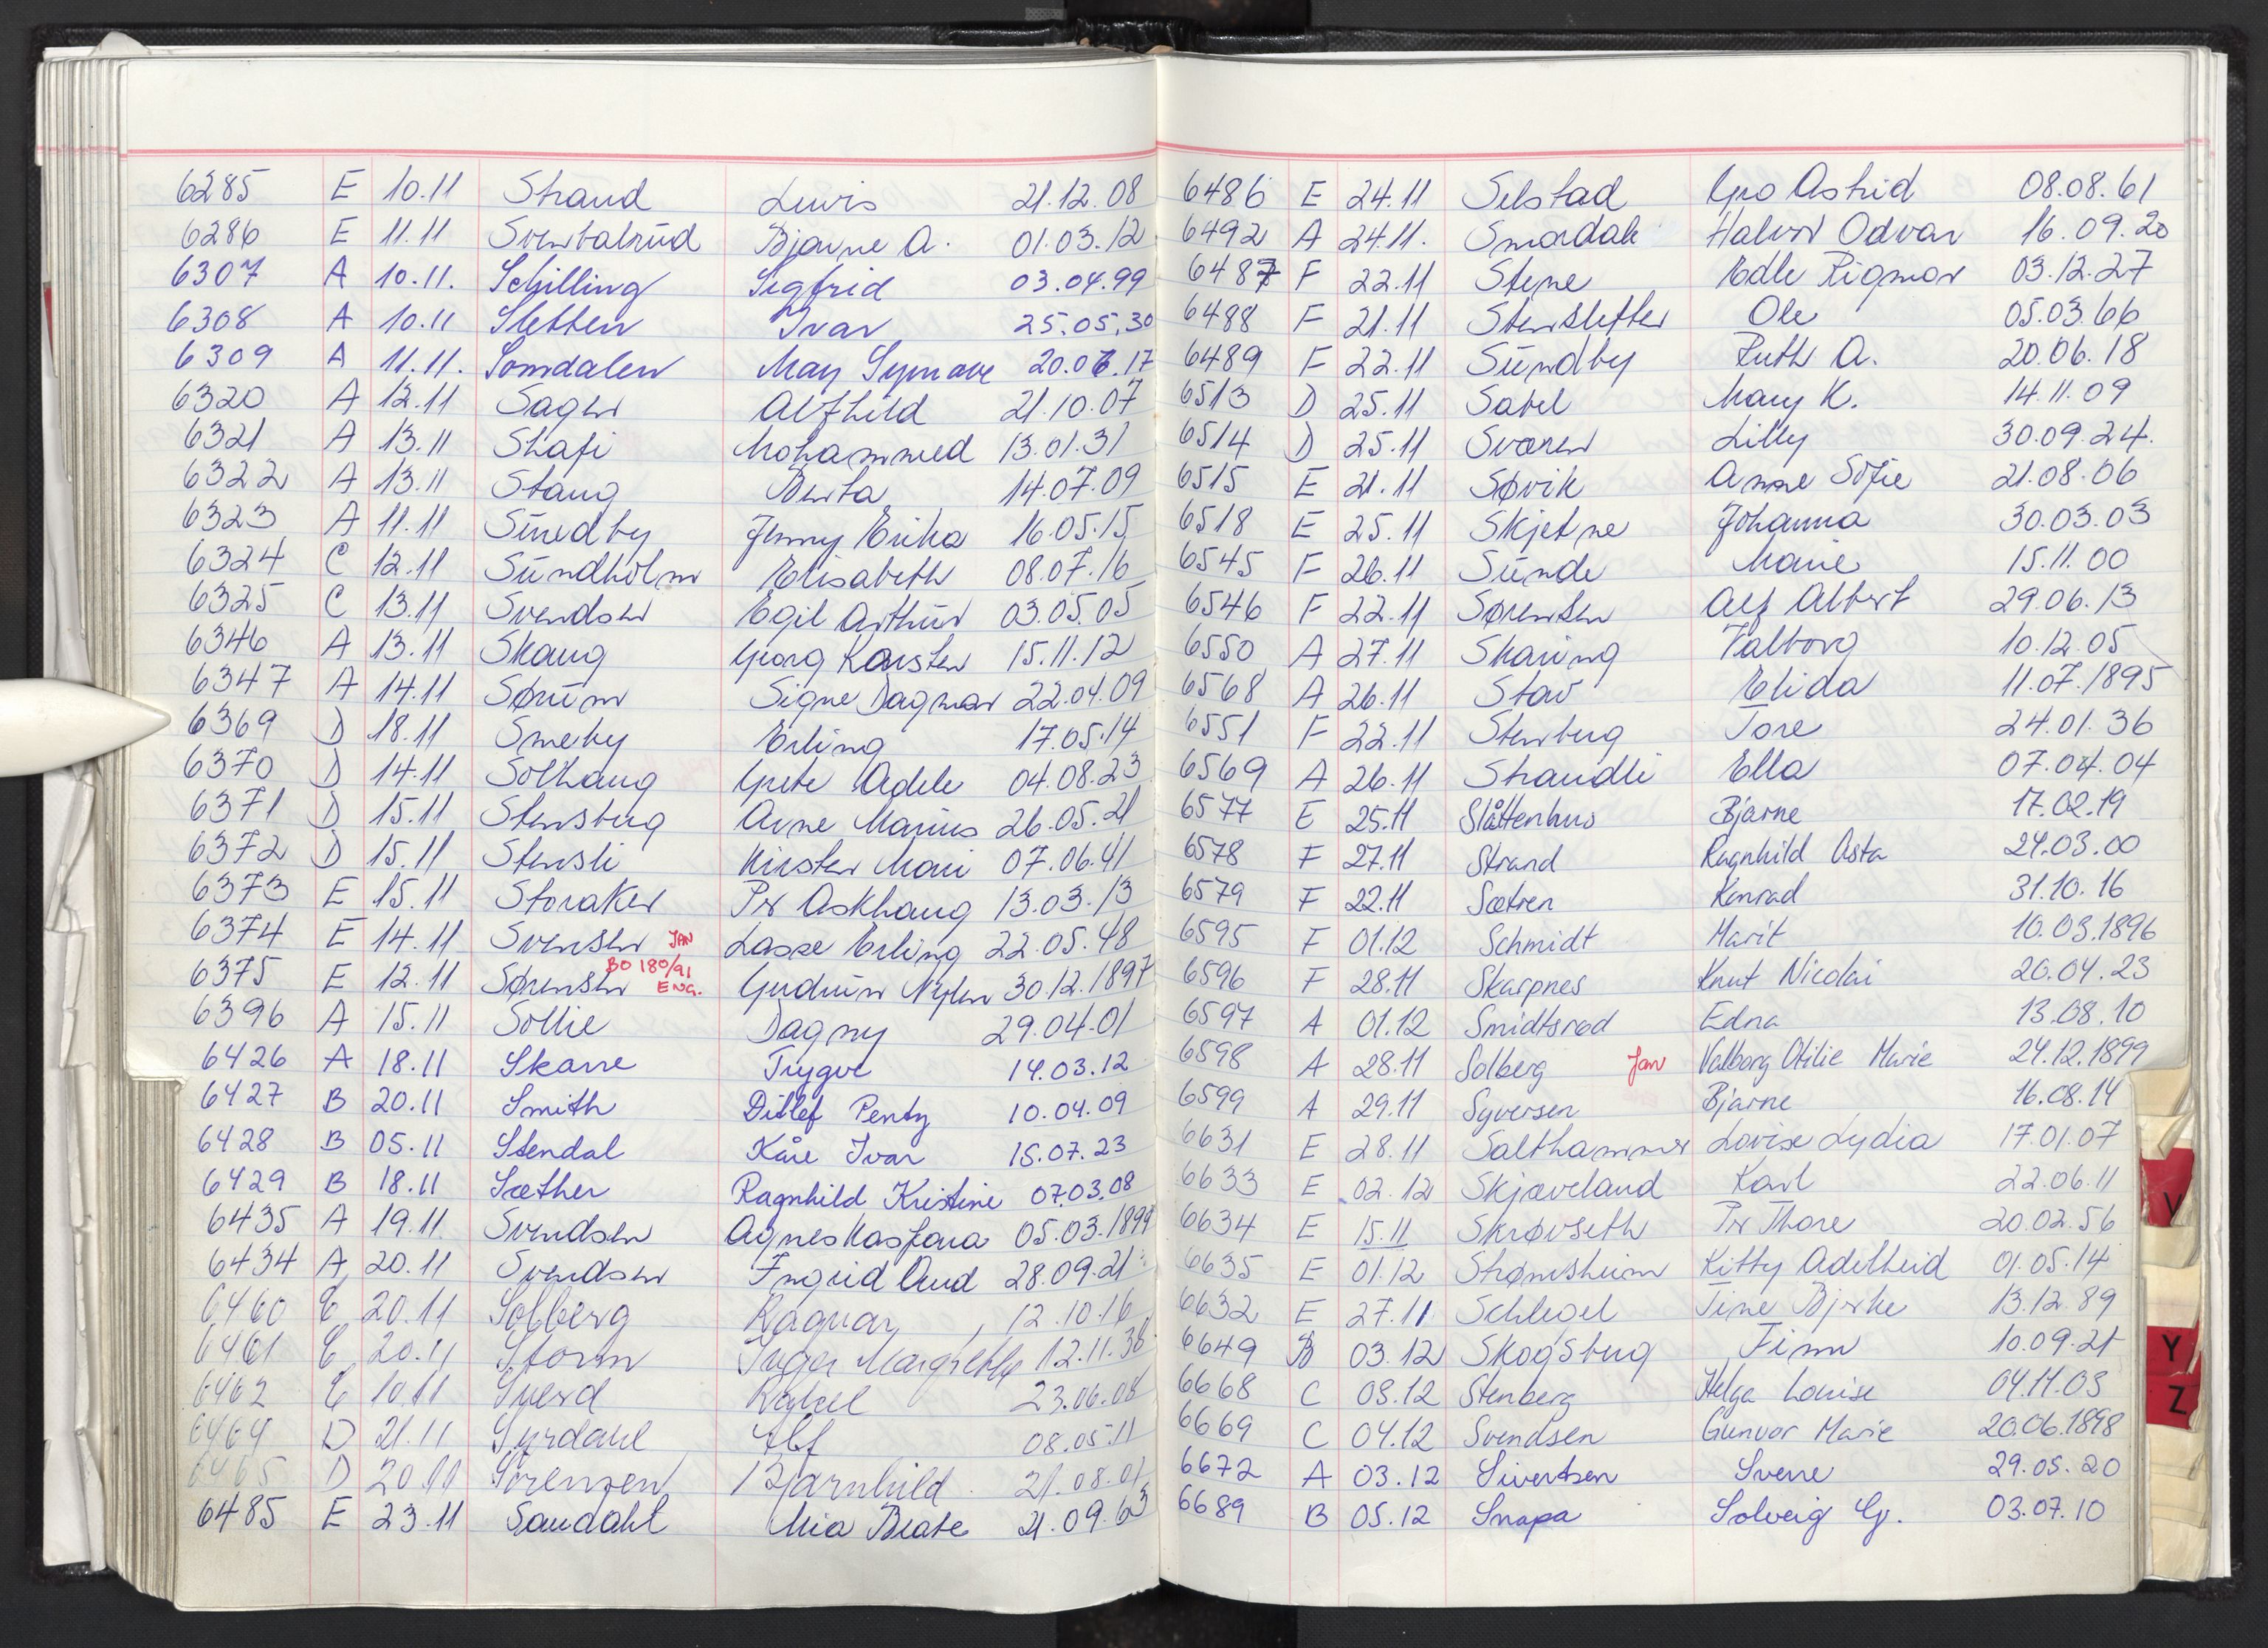 6285 E 10.11 Strand Lewis 21.12.08
6286 E 11.11 Svenbalrud Bjarne A. 01.03.12
6307 A 10.11. Schilling Sigfrid 03.04.99
6308 A 10.11 Sletten Ivar 25.05.30
6309 A 11.11. Somdalen May Synnøve 20.06.17
6320 A 12.11 Sagen Alfhild 21.10.07
6321 A 13.11 Shafi Mohammed 13.01.31
6322 A 13.11 Stang Berta 14.07.09
6323 A 11.11 Sundby Jenny Erika 16.05.15
6324 C 12.11 Sundholm Elisabeth 08.07.16
6325 C 13.11 Svendsen Egil Arthur 03.05.05
6346 A 13.11 Skaug Georg Karsten 15.11.12
6347 A 14.11 Sørum Signe Dagmar 22.04.09
6369 D 18.11 Smeby Erling 17.05.14
6370 D 14.11 Solhaug Grete Adele 04.08.23
6371 D 15.11 Stensberg Arne Marius 26.05.21
6372 D 15.11 Stensli Kirsten Mari 07.06.41
6373 E 15.11 Storaker Per Askhaug 13.03.13
6374 E 14.11 Svensen JAN Lasse Erling 22.05.48
6375 E 12.11 Sørensen BO 180/91 ENG. Gudrun Nylen 30.12.1897
6396 A 15.11 Sollie Dagny 29.04.01
6426 A 18.11 Skarre Trygve 14.03.12
6427 B 20.11 Smith Ditlef Pentz 10.04.09
6428 B 05.11 Stendal Kåre Ivar 15.07.23
6429 B 18.11 Sæther Ragnhild Kristine 07.03.08
6435 A 19.11 Svendsen Agnes Kasfara 05.03.1899
6434 A 20.11 Svendsen Ingrid Aud 28.09.21
6460 C 20.11 Solberg Ragnar 12.10.16
6461 C 20.11 Storm Inger Margrethe 12.11.38
6462 C 10.11 Sverd Rakel 23.06.08
6464 D 21.11 Syrdahl Alf 08.05.11
6465 D 20.11 Sørensen Bjarnhild 21.08.01
6485 E 23.11 Sandahl Mia Beate 21.09.63
6486 E 24.11 Selstad Gro Astrid 08.08.61
6492 A 24.11. Smørdale Halvor Odvar 16.09.20
6487 F 22.11 Stene Edle Rigmor 03.12.27
6488 F 21.11 Stensletten Ole 05.03.66
6489 F 22.11 Sundby Ruth A. 20.06.18
6513 D 25.11 Sabel Mary K. 14.11.09
6514 D 25.11 Svaren Lilly 30.09.24.
6515 E 21.11 Søvik Anne Sofie 21.08.06
6518 E 25.11 Skjetne Johanna 30.03.03
6545 F 26.11 Sunde Marie 15.11.00
6546 F 22.11 Sørensen Alf Albert 29.06.13
6550 A 27.11 Skaring Valborg 10.12.05
6568 A 26.11 Stav Elida 11.07.1895
6551 F 22.11 Stenberg Tore 24.01.36
6569 A 26.11 Strandli Ella 07.04.04
6577 E 25.11 Slåttenhus Bjarne 17.02.19
6578 F 27.11 Strand Ragnhild Asta 24.03.00
6579 F 22.11 Sætren Konrad 31.10.16
6595 F 01.12 Schmidt Marit 10.03.1896
6596 F 28.11 Skarpnes Knut Nicolai 20.04.23
6597 A 01.12 Smidtsrød Edna 13.08.10
6598 A 28.11 Solberg Jan Valborg Otilie Marie 24.12.1899
6599 A 29.11 Syversen Bjarne 16.08.14
6631 E 28.11 Salthammer Lovise Lydia 17.01.07
6633 E 02.12 Skjæveland Karl 22.06.11
6634 E 15.11 Skrøvseth Per Thore 20.02.56
6635 E 01.12 Strømsheim Kitty Adelheid 01.05.14
6632 E 27.11 Schlegel Tine Bjerke 13.12.89
6649 B 03.12 Skogsberg Finn 10.09.21
6668 C 03.12 Stenberg Helga Louise 04.11.03
6669 C 04.12 Svendsen Gunvor Marie 20.06.1898
6672 A 03.12 Sivertsen Sverre 29.05.20
6689 B 05.12 Snapa Solveig G. 03.07.10
V
Y
Z